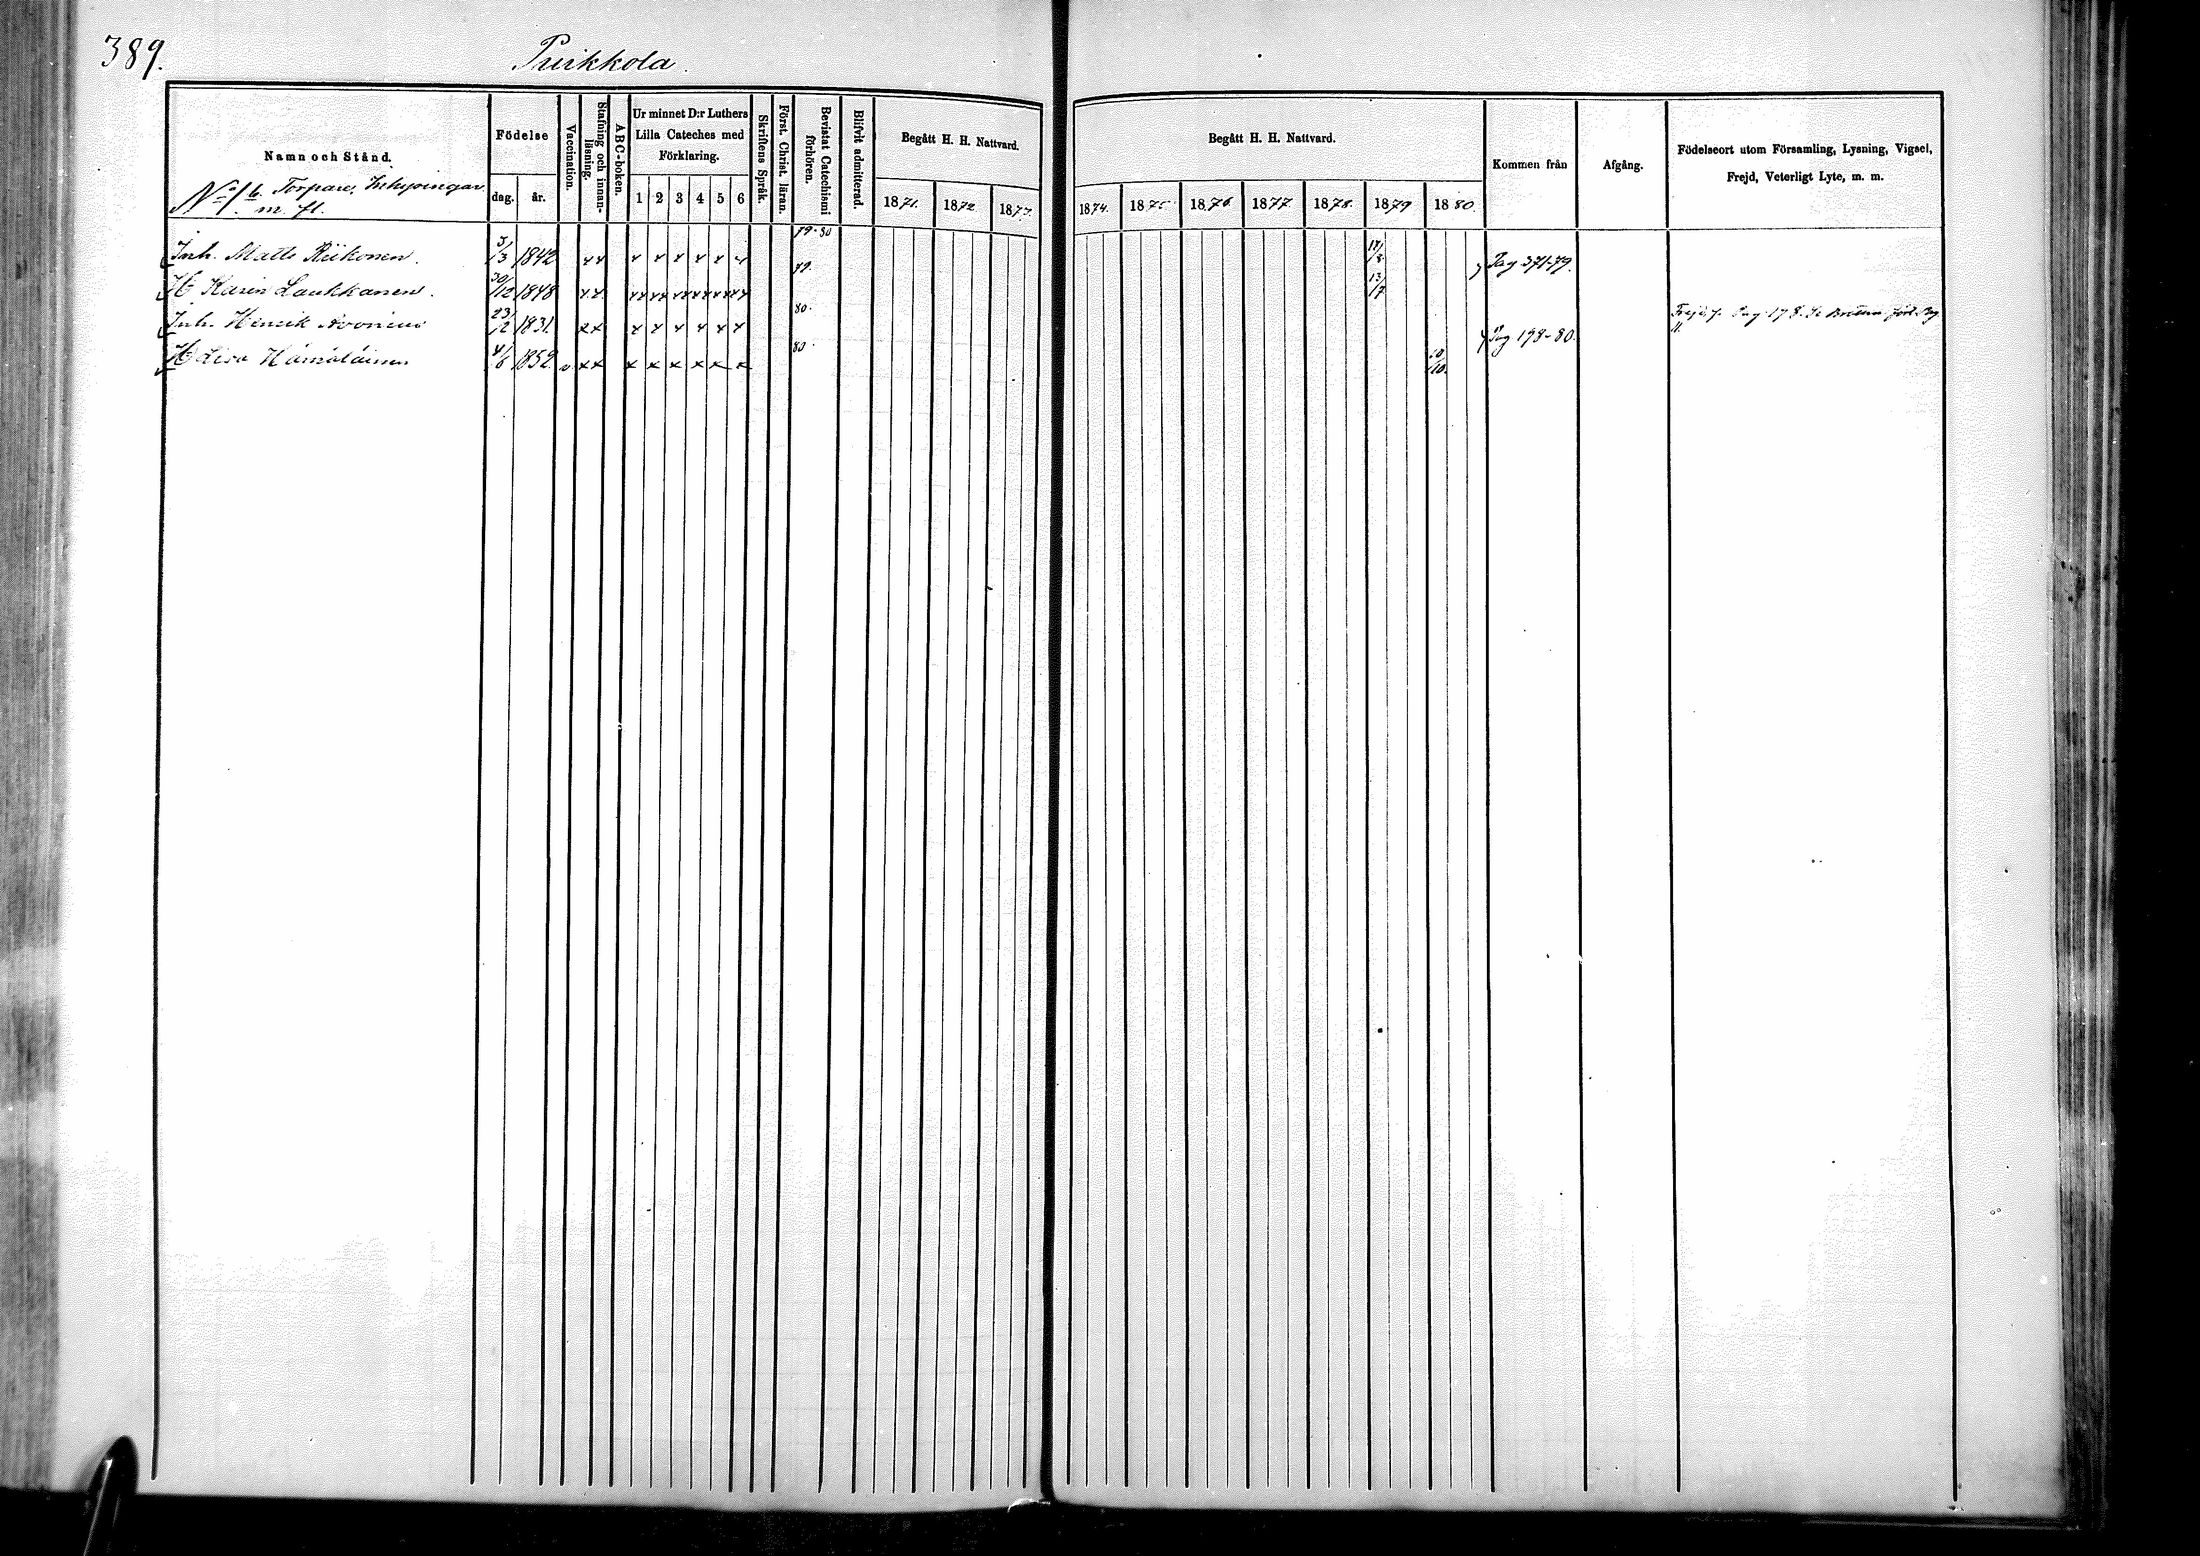 389.
Puikkola.
Namn och Stånd.
No 1/6. Torpare, Inhysingar
m. fl.
Födelse
dag.
år.
Vaccination.
Stafning och innan-läsning.
ABC-boken.
Ur minnet D:r Luthers
Lilla Cateches med
Förklaring.
1 2 3 4 5 6
Skriftens Språk.
Först. Christ. läran.
Bevistat Catechismi förhören.
Blifvit admitterad.
Begått H. H. Nattvard.
1871. 1872 1873.
Begått H. H. Nattvard.
1874. 1875. 1876 1877. 1878. 1879 1880.
Kommen från
Afgång.
Födelseort utom Församling, Lysning, Vigsel,
Frejd, Veterligt Lyte, m. m.
Inh. Matts Riikonen. 3/3 1842 x x x x x x x x 79-80 17/8 Pag 371-79.
H Karin Laukkanen. 30/12 1848 x x xx xx xx xx xx xx 79. 13/7
Inh. Henrik 23/2 1831. x x x x x x x x 80. Pag 178-80. Pag 178.
H Lisa Hämäläinen 4/6 1852. v. x x x x x x x x 80. 10/10.